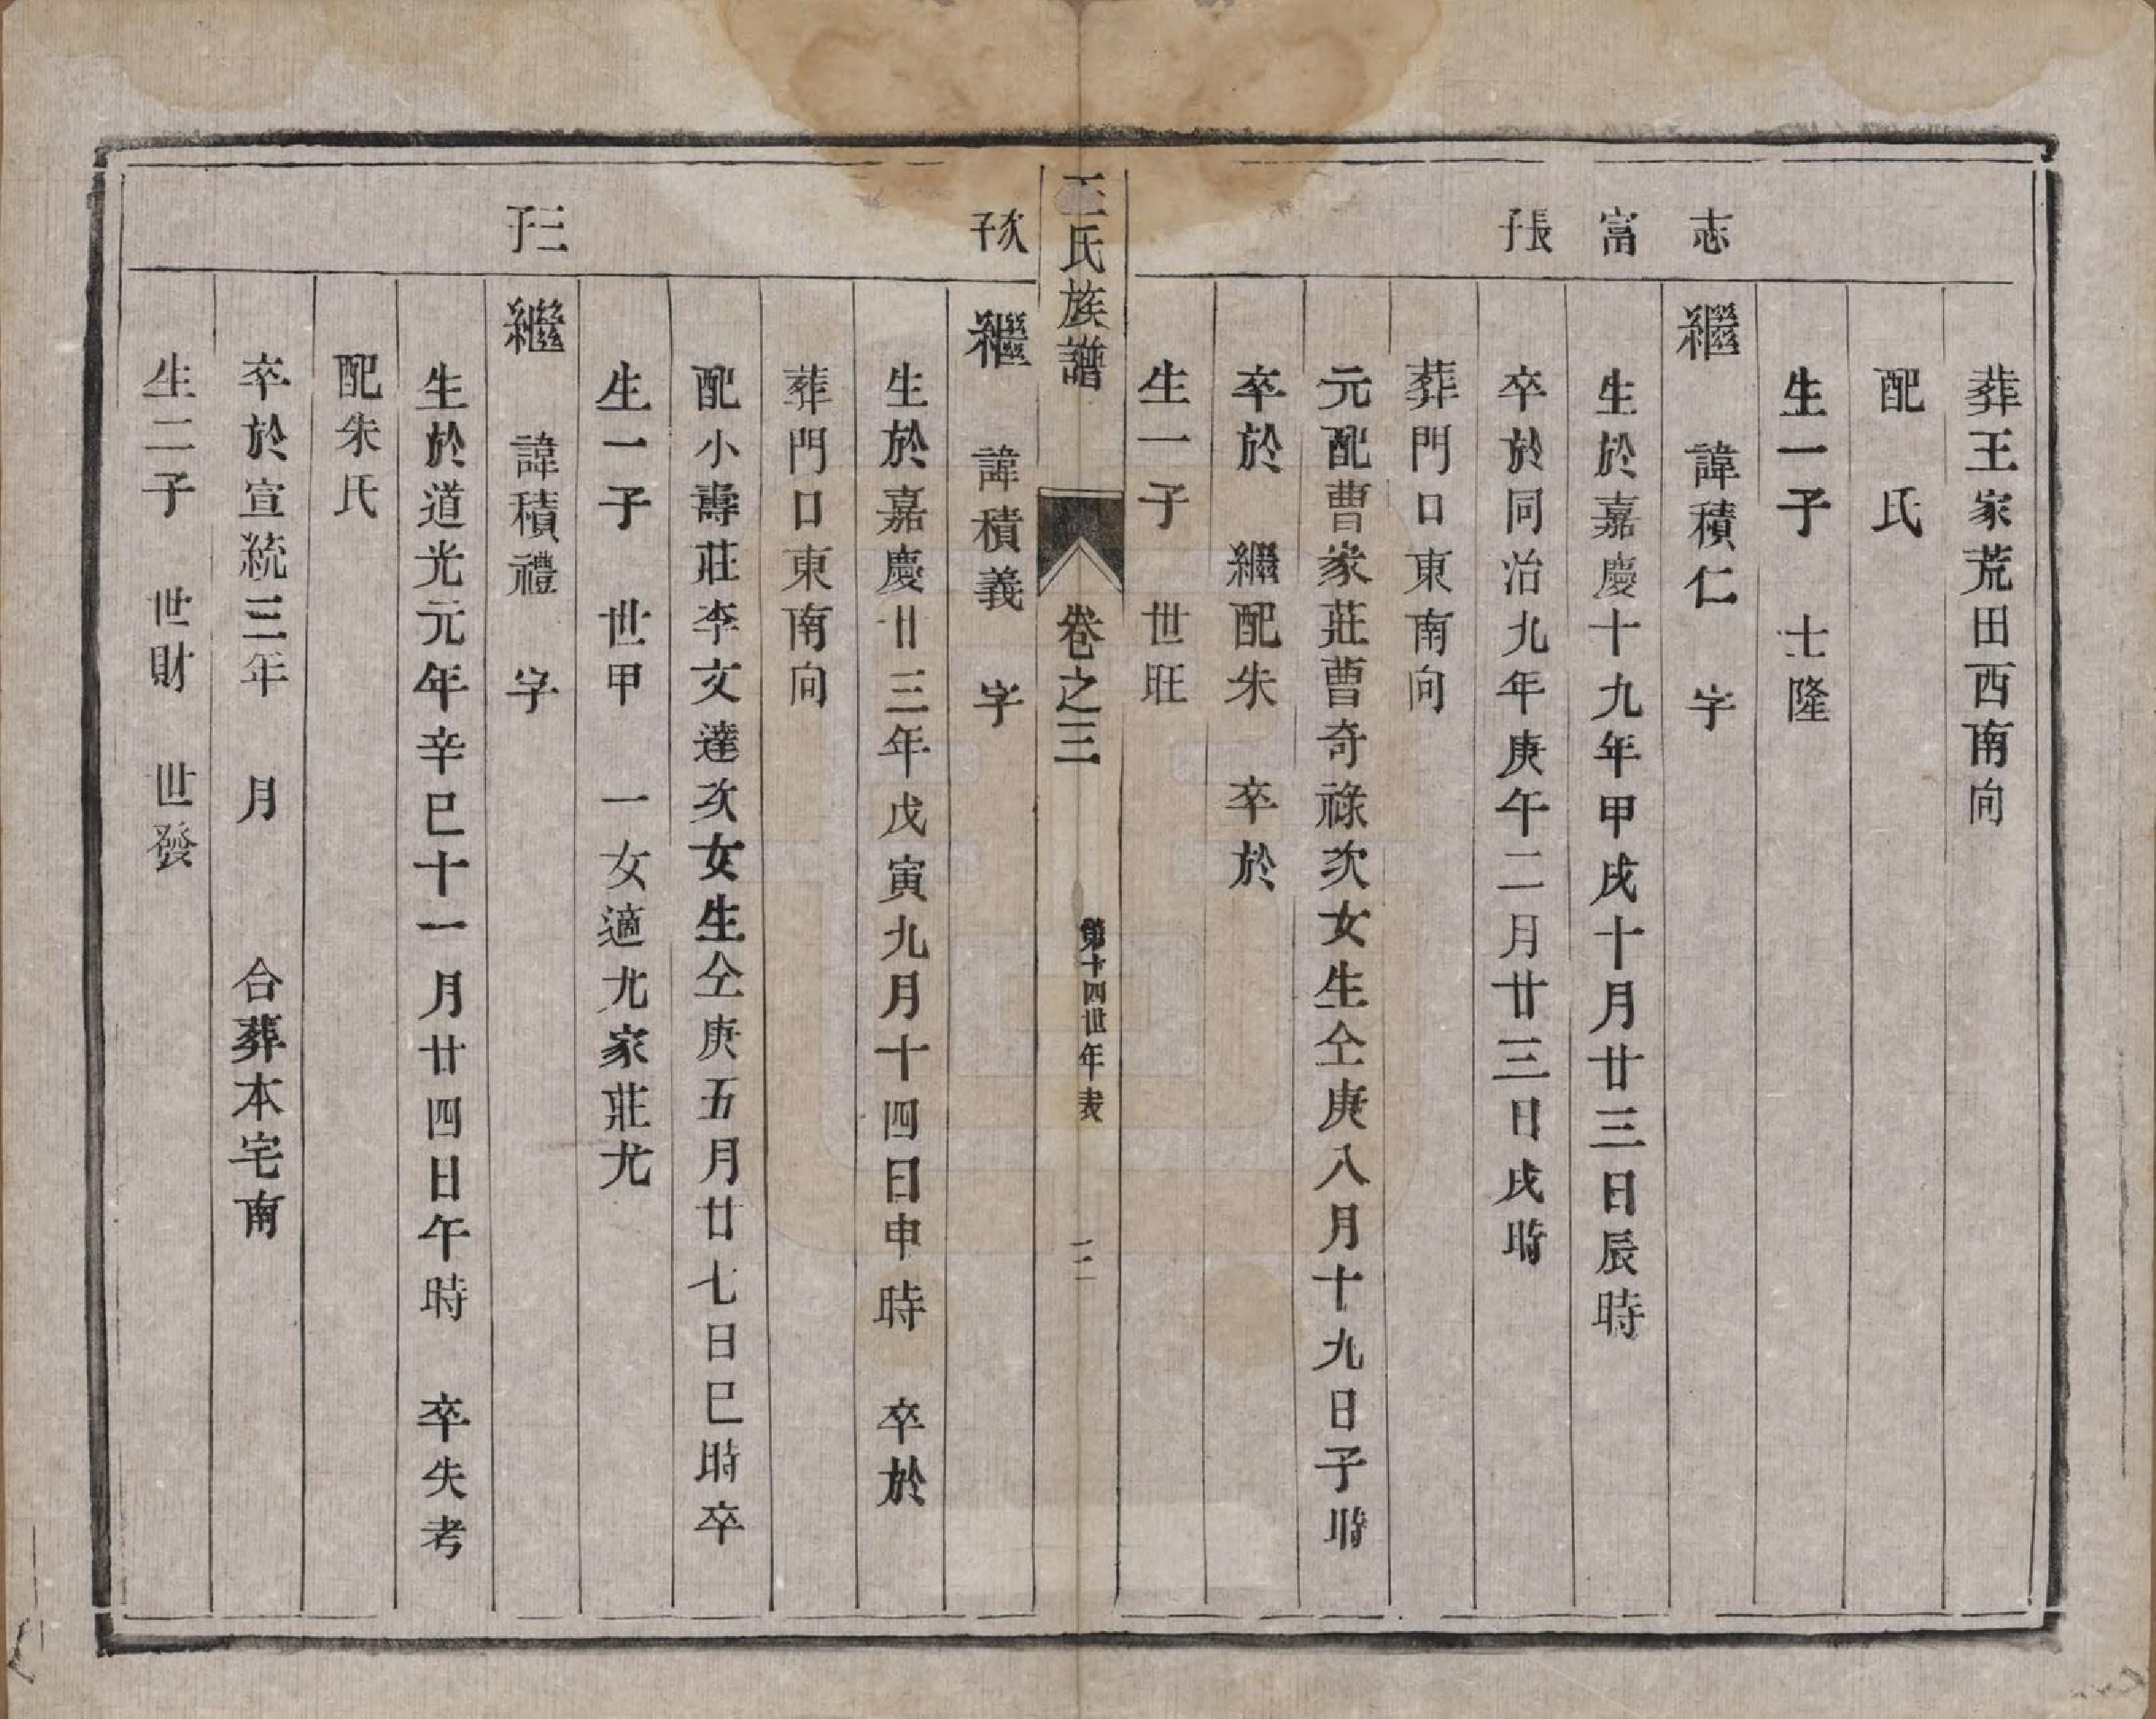 葬王家荒田西南向
配　氏
生一子　士隆
志
繼　諱積仁　字
富
生於嘉慶十九年甲戌十月廿三日辰時
長子
卒於同治九年庚午二月廿三日戌時
葬門口東南向
元配曹家莊曹奇祿次女生仝庚八月十九日子時
卒於　繼配朱　卒於
生一子　世旺
王氏族譜　卷之三　第十四世年表　二
次子
繼　諱積義　字
生於嘉慶廿三年戊寅九月十四日申時　卒於
葬門口東南向
配小壽莊李文達次女生仝庚五月廿七日巳時卒
生一子　世甲　一女適尤家莊尤
三子
繼　諱積禮　字
生於道光元年辛巳十一月廿四日午時　卒失考
配朱氏
卒於宣統三年　月　　合葬本宅南
生二子　世財　世發